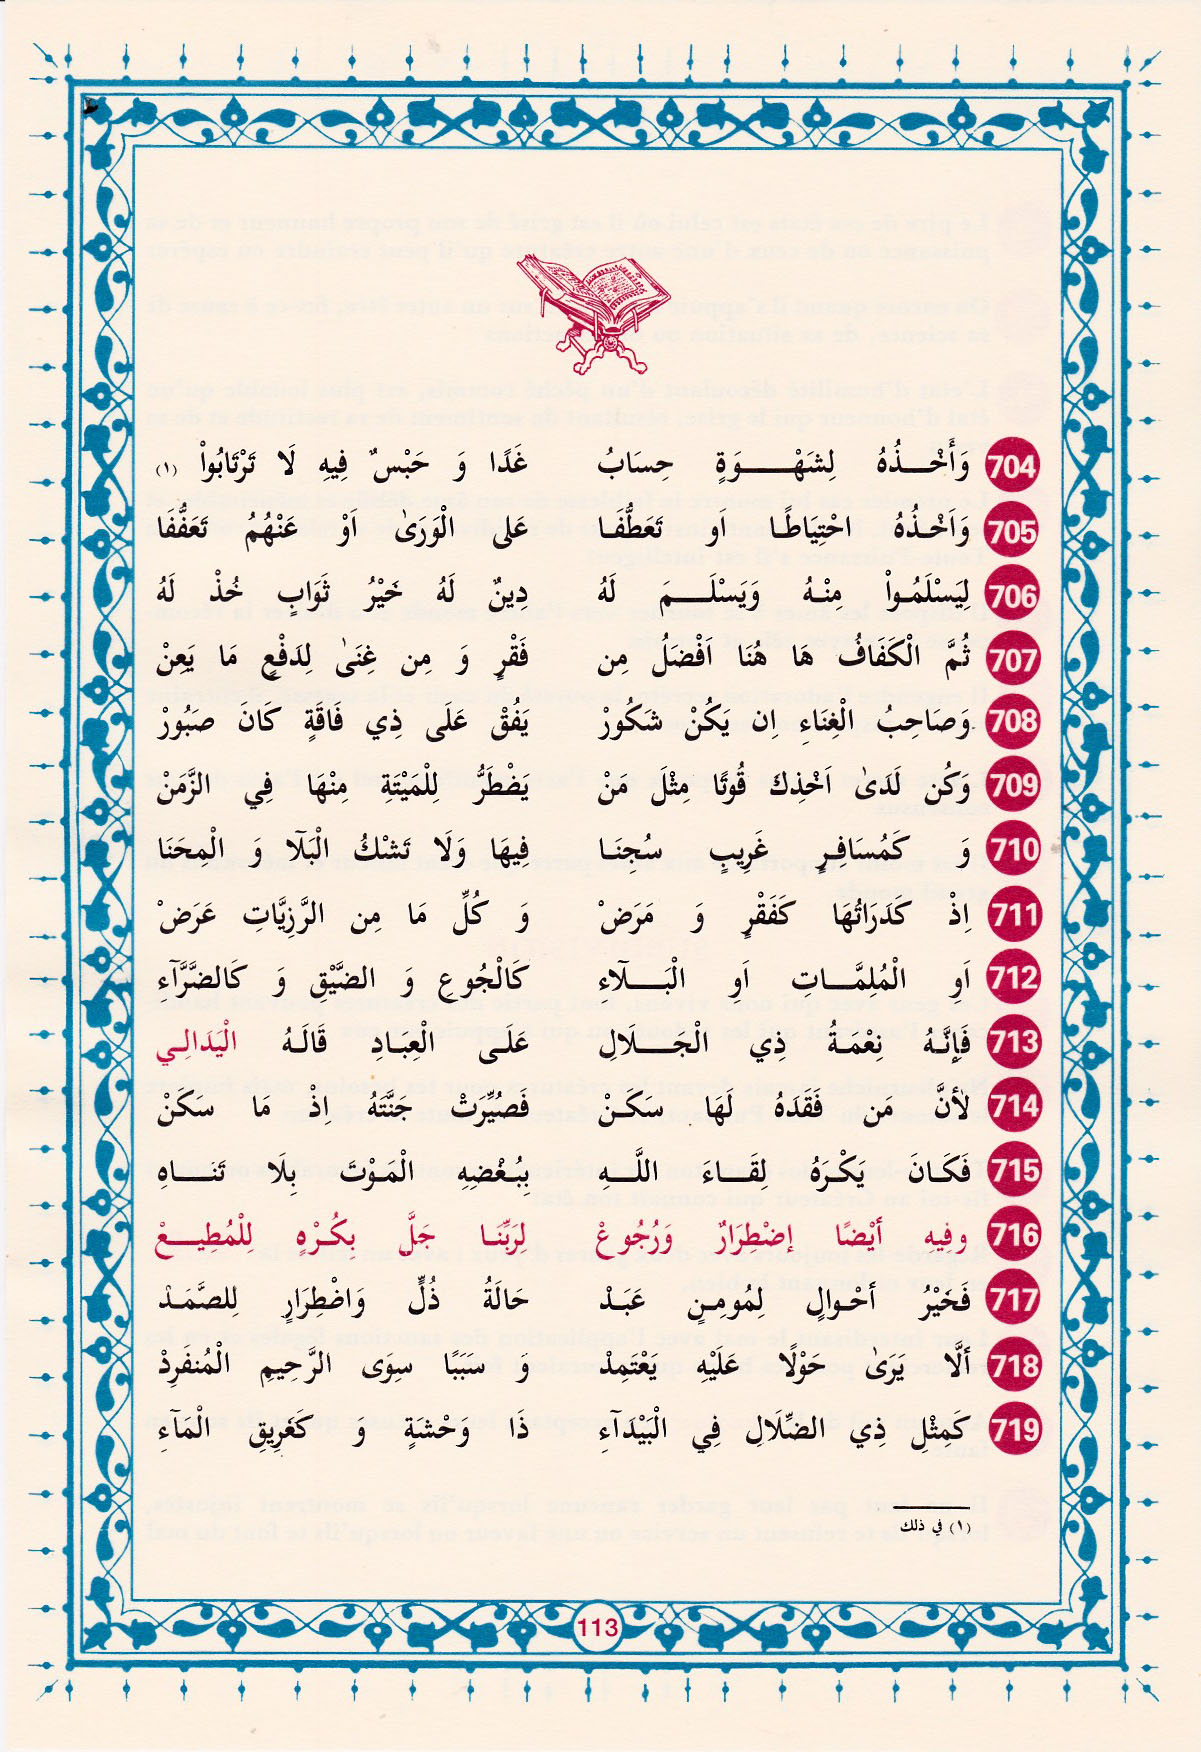 704 وَأَخْذُهُ لِشَهْوَةٍ حِسَابُ غَدًا وَ حَبْسٌ فِيهِ لَا تَرْتَابُواْ (١)
705 وَاَخْذُهُ احْتِيَاطًا اَو تَعَطُّفَا عَلى الْوَرَىٰ اَوْ عَنْهُمُ تَعَفُّفَا
706 لِيَسْلَمُواْ مِنْهُ وَيَسْلَمَ لَهُ دِينٌ لَهُ خَيْرُ ثَوَابٍ خُذْ لَهُ
707 ثُمَّ الْكَفَافُ هَا هُنَا اَفْضَلُ مِن فَقْرٍ وَ مِن غِنَىٰ لِدَفْعٍ مَا يَعِنْ
708 وَصَاحِبُ الْغِنَاءِ اِن يَكُنْ شَكُورْ يَفُقْ عَلَى ذِي فَاقَةٍ كَانَ صَبُورْ
709 وَكُن لَدَىٰ اَخْذِكَ قُوتًا مِثْلَ مَنْ يَضْطَرُّ لِلْمَيْتَةِ مِنْهَا فِي الزَّمَنْ
710 وَ كَمُسَافِرٍ غَرِيبٍ سُجِنَا فِيهَا وَلَا تَشْكُ الْبَلَا وَ الْمِحَنَا
711 اِذْ كَدَرَاتُهَا كَفَقْرٍ وَ مَرَضْ وَ كُلِّ مَا مِن الرَّزِيَّاتِ عَرَضْ
712 اَوِ الْمُلِمَّاتِ اَوِ الْبَلَاءِ كَالْجُوعِ وَ الضَّيْقِ وَ كَالضَّرَّآءِ
713 فَإِنَّهُ نِعْمَةُ ذِي الْجَلَالِ عَلَى الْعِبَادِ قَالَهُ الْيَدَالِي
714 لأنَّ مَن فَقَدَهُ لَهَا سَكَنْ فَصُيِّرَتْ جَنَّتَهُ اِذْ مَا سَكَنْ
715 فَكَانَ يَكْرَهُ لِقَاءَ اللَّهِ بِبُغْضِهِ الْمَوْتَ بِلَا تَنَاهِ
716 وفِيهِ أيْضًا إضْطِرَارٌ وَرُجُوعْ لِرَبِّنَا جَلَّ بِكُرْهٍ لِلْمُطِيعْ
717 فَخَيْرُ أحْوالٍ لِمُومِنٍ عَبَدْ حَالَةُ ذُلٍّ وَاضْطِرَارٍ لِلصَّمَدْ
718 ألَّا يَرَىٰ حَوْلًا عَلَيْهِ يَعْتَمِدْ وَ سَبَبًا سِوَى الرَّحِيمِ الْمُنفَرِدْ
719 كَمِثْلِ ذِي الضِّلَالِ فِي الْبَيْدَآءِ ذَا وَحْشَةٍ وَ كَغَرِيقِ الْمَآءِ
(١) في ذلك
113